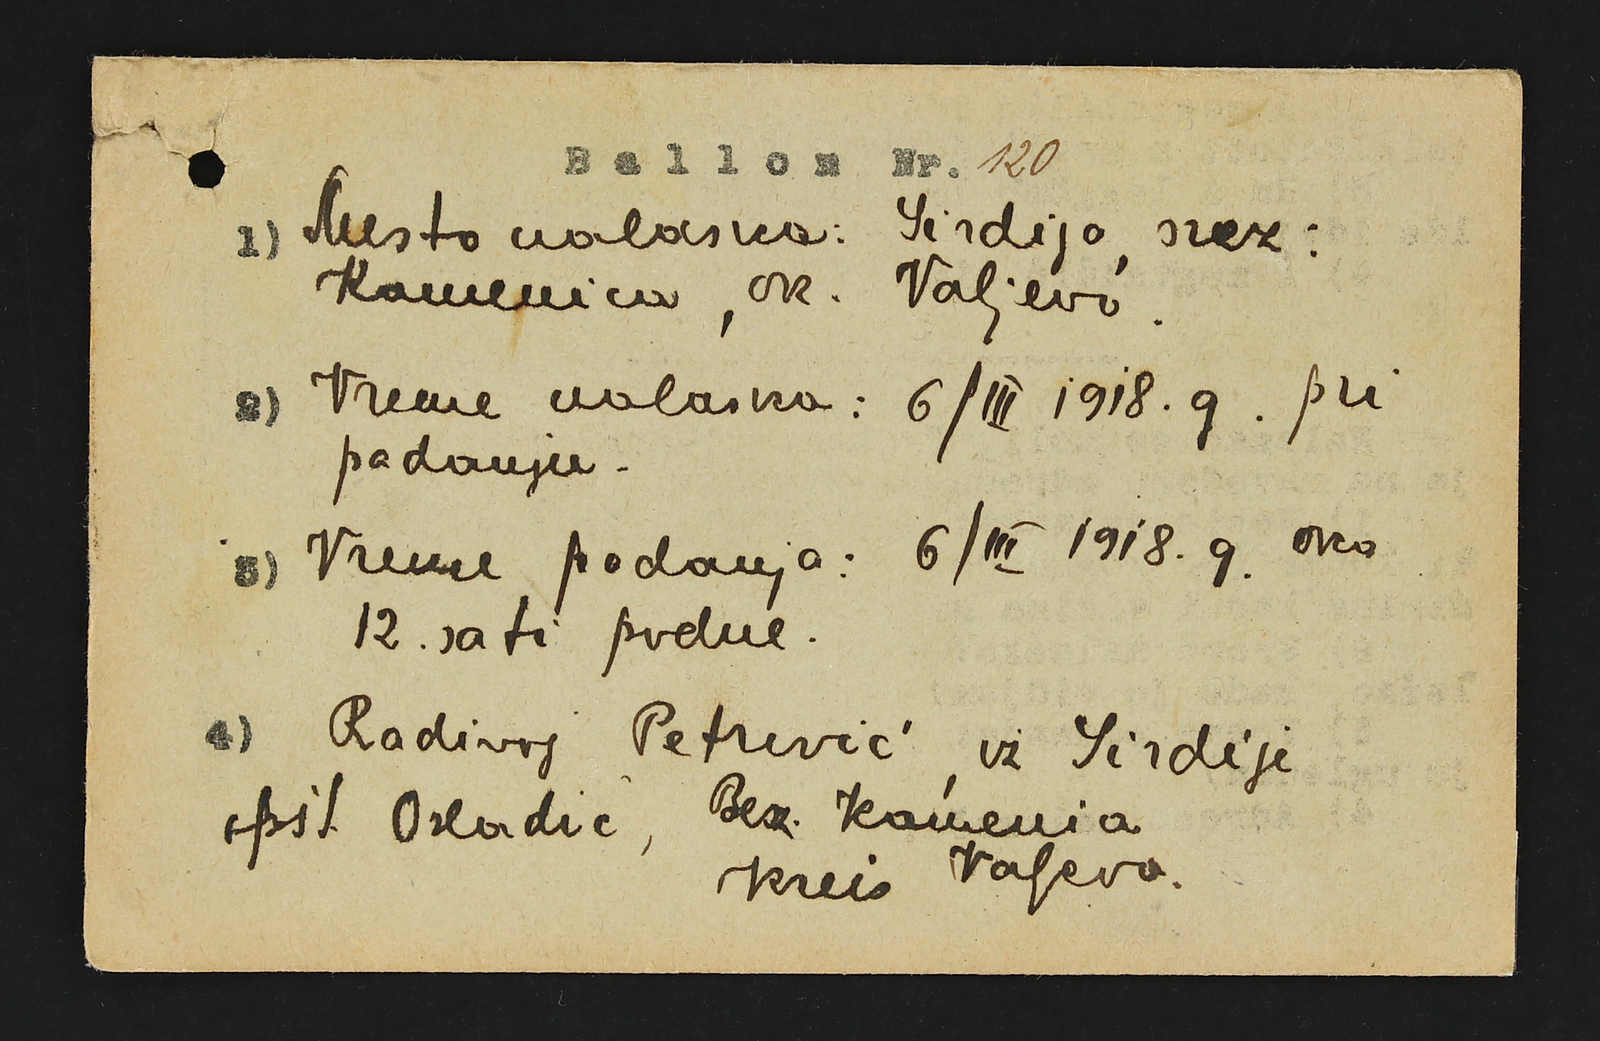 Ballon Nr. 120
1) Mesto nalaska: Sirdija, srez:
Kamenica, ok. Valjevo.
2) Vreme nalaska: 6/III 1918. g. pri
padanju.
3) Vreme padanja: 6/III 1918. g. oko
12. sati podne.
4) Radivoj Petrović, iz Sirdije
opšt. Osladić, Bez. Kamenica
Kreis Valjevo.